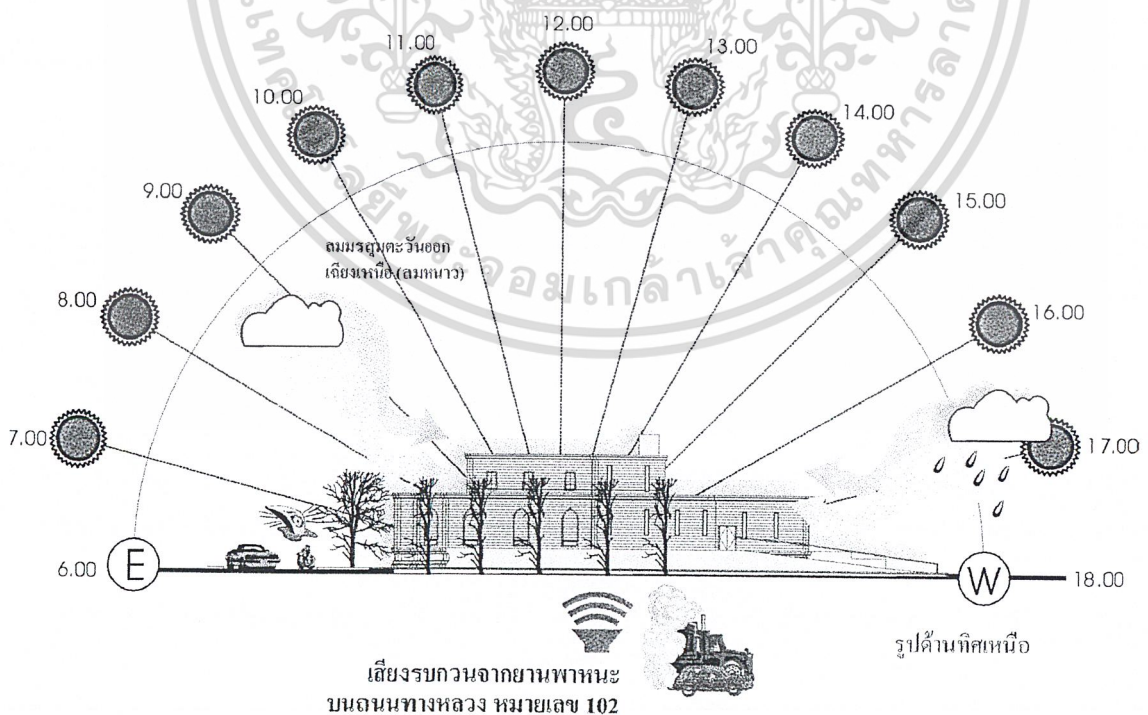 12.00
11.00
13.00
10.00
14.00
9.00
15.00
ลมมรสุมตะวันออก
เฉียงเหนือ(ลมหนาว)
8.00
16.00
7.00
17.00
6.00
E
W
18.00
รูปด้านทิศเหนือ
เสียงรบกวนจากยานพาหนะ
บนถนนทางหลวง หมายเลข 102
พระจอมเกล้าเจ้าคุณทหารลาด